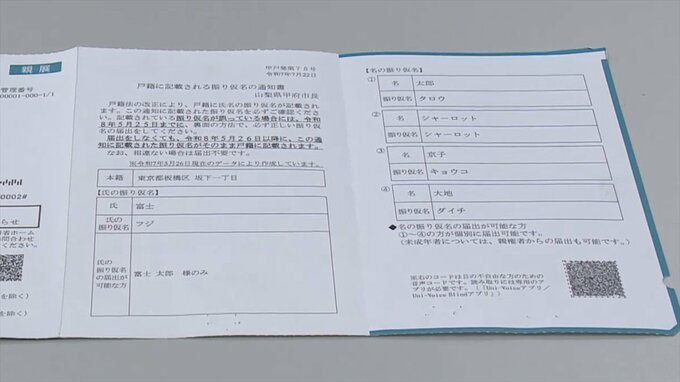 親展
管理番号
00001-000-1/1
0002#
らせ
省ホーム
問合わせ
ください
を除く)
を除く)
甲戸発第78号
令和7年7月22日
戸籍に記載される振り仮名の通知書
山梨県甲府市長
戸籍法の改正により、戸籍に氏名の振り仮名が記載され
ます。この通知に記載された振り仮名を必ずご確認くださ
い。記載されている振り仮名が誤っている場合には、令和
8年5月25日までに、裏面の方法で、必ず正しい振り仮
名の届出をしてください。
届出をしなくても、令和8年5月26日以降に、この通
知に記載された振り仮名がそのまま戸籍に記載されます。
なお、相違ない場合は届出不要です。
※令和7年5月26日現在のデータにより作成しています。
本籍 東京都板橋区 坂下一丁目
【氏の振り仮名】
氏 富士
氏の振り仮名 フジ
氏の振り仮名の届出が可能な方 富士 太郎 様のみ
【名の振り仮名】
①
名 太郎
振り仮名 タロウ
②
名 シャーロット
振り仮名 シャーロット
③
名 京子
振り仮名 キョウコ
④
名 大地
振り仮名 ダイチ
◆名の振り仮名の届出が可能な方
①~④の方が個別に届出可能です。
(未成年者については、親権者からの届出も可能です。)
※右のコードは目の不自由な方のための
音声コードです。読み取りには専用のア
プリが必要です。(「Uni-Voiceアプリ/
Uni-Voice Blindアプリ」)